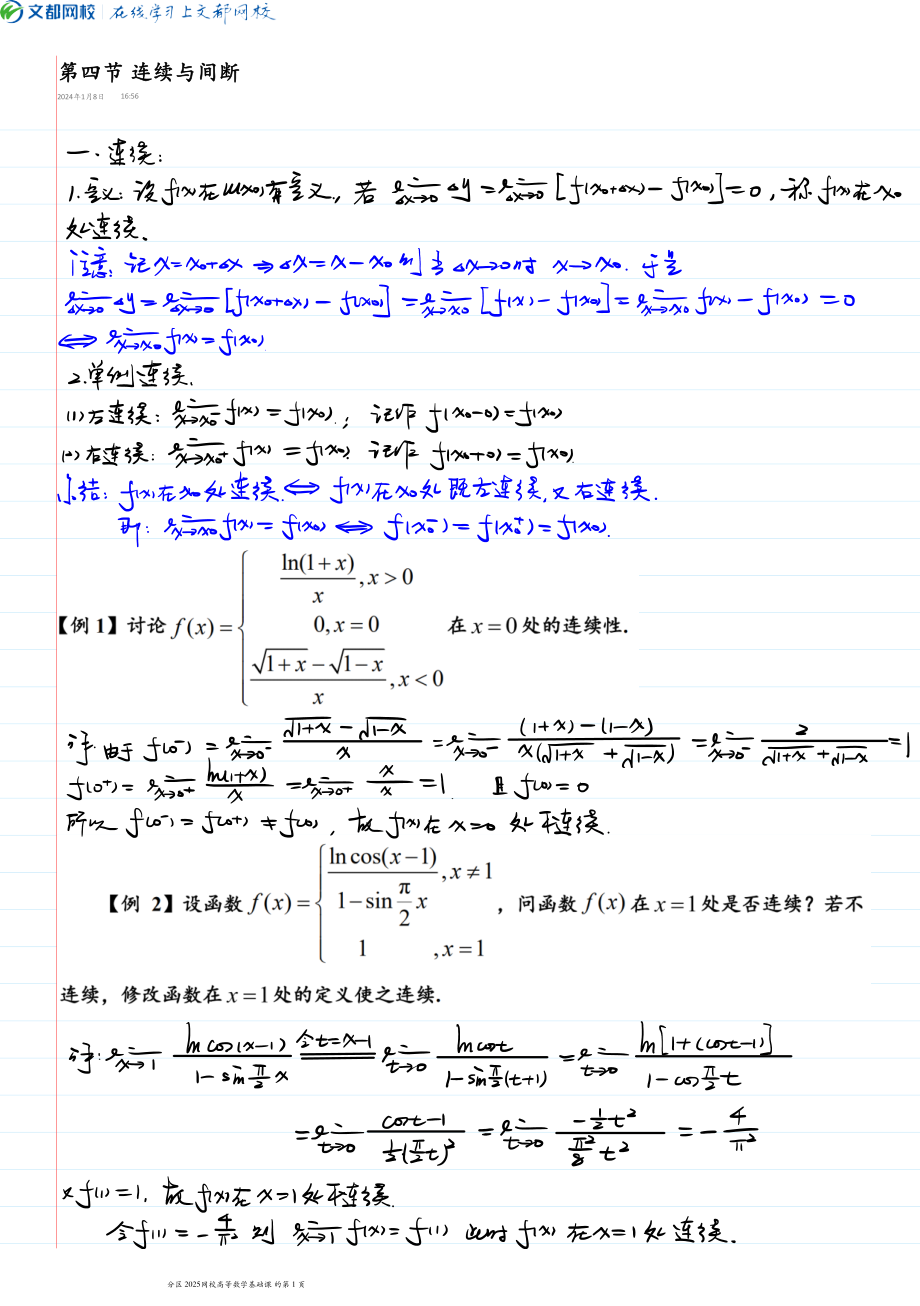 文都网校 在线学习上文都网校
第四节 连续与间断
2024年1月8日 16:56
一. 连续:
1.定义: 设 f(x) 在 U(x₀) 有定义, 若 lim_{Δx→0} Δy = lim_{Δx→0} [f(x₀+Δx) − f(x₀)] = 0, 称 f(x) 在 x₀
处连续.
注意: 记 x = x₀+Δx ⇒ Δx = x − x₀ 则当 Δx→0时 x→x₀. 于是
lim_{Δx→0} Δy = lim_{Δx→0} [f(x₀+Δx) − f(x₀)] = lim_{x→x₀} [f(x) − f(x₀)] = lim_{x→x₀} f(x) − f(x₀) = 0
⟺ lim_{x→x₀} f(x) = f(x₀)
2.单侧连续.
(1) 左连续: lim_{x→x₀⁻} f(x) = f(x₀), 记作 f(x₀−0) = f(x₀)
(2) 右连续: lim_{x→x₀⁺} f(x) = f(x₀) 记作 f(x₀+0) = f(x₀)
总结: f(x) 在 x₀ 处连续 ⟺ f(x) 在 x₀ 处既左连续, 又右连续.
即: lim_{x→x₀} f(x) = f(x₀) ⟺ f(x₀⁻) = f(x₀⁺) = f(x₀).
【例 1】讨论 f(x) = { ln(1+x)/x, x > 0; 0, x = 0; (√(1+x) − √(1−x))/x, x < 0 在 x = 0 处的连续性.
详: 由于 f(0⁻) = lim_{x→0⁻} (√(1+x) − √(1−x))/x = lim_{x→0⁻} ((1+x)−(1−x))/(x(√(1+x) + √(1−x))) = lim_{x→0⁻} 2/(√(1+x) + √(1−x)) = 1
f(0⁺) = lim_{x→0⁺} ln(1+x)/x = lim_{x→0⁺} x/x = 1. 且 f(0) = 0
所以 f(0⁻) = f(0⁺) ≠ f(0), 故 f(x) 在 x=0 处不连续.
【例 2】设函数 f(x) = { ln cos(x−1)/(1−sin(π/2)x), x ≠ 1; 1, x = 1 , 问函数 f(x) 在 x = 1 处是否连续? 若不
连续, 修改函数在 x = 1 处的定义使之连续.
详: lim_{x→1} ln cos(x−1)/(1−sin(π/2)x) =(令t=x−1)= lim_{t→0} ln cos t/(1−sin(π/2)(t+1)) = lim_{t→0} ln[1+(cos t−1)]/(1−cos(π/2)t)
= lim_{t→0} (cos t−1)/(½(π/2 t)²) = lim_{t→0} (−½t²)/(π²/8 t²) = −4/π²
又 f(1) = 1, 故 f(x) 在 x=1 处不连续.
令 f(1) = −4/π² 则 lim_{x→1} f(x) = f(1) 此时 f(x) 在 x=1 处连续.
分区 2025网校高等数学基础课 的第 1 页